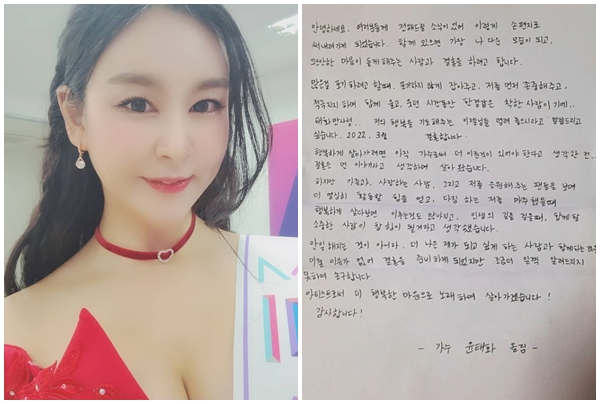 안녕하세요. 여러분들께 전해드릴 소식이 있어 이렇게 손편지로
써내려가게 되었습니다. 함께 있으면 가장 나 다운 모습이 되고,
편안한 마음이 들게 해주는 사람과 결혼을 하려고 합니다.
많은걸 포기하려고 할때, 포기하지 않게 잡아주고, 저를 먼저 존중해주고,
묵묵히 함께 울고, 웃던 시간동안 한결같은 착한 사람이기에..
저의 행복을 기도해주는 이 말씀드리고
싶습니다. 2022. 3월 결혼합니다.
행복하게 살아가려면 아직 가수로써 더 이룬것이 있어야 한다고 생각한 전..
결혼은 먼 이야기라고 생각하며 살아 왔습니다.
하지만 가족과, 사랑하는 사람, 그리고 저를 응원해주는 팬들을 보며
더 열심히 활동할 힘을 얻고, 다짐 하는 저를 마주했을때
행복하게 살다보면 이루는것도 많아지고, 인생의 길을 걸을때, 함께 할
소중한 사람이 참 힘이 될거라고 생각했습니다.
안일해지는 것이 아니라. 더 나은 제가 되고 싶게 하는 사람과 함께
이유가 없어 결혼을 준비하게 되었지만 조금더 일찍 알려드리지
못하여 송구합니다.
아티스트로써 더 행복한 마음으로 노래하며 살아가겠습니다!
감사합니다!
- 가수 윤태화 올림 -